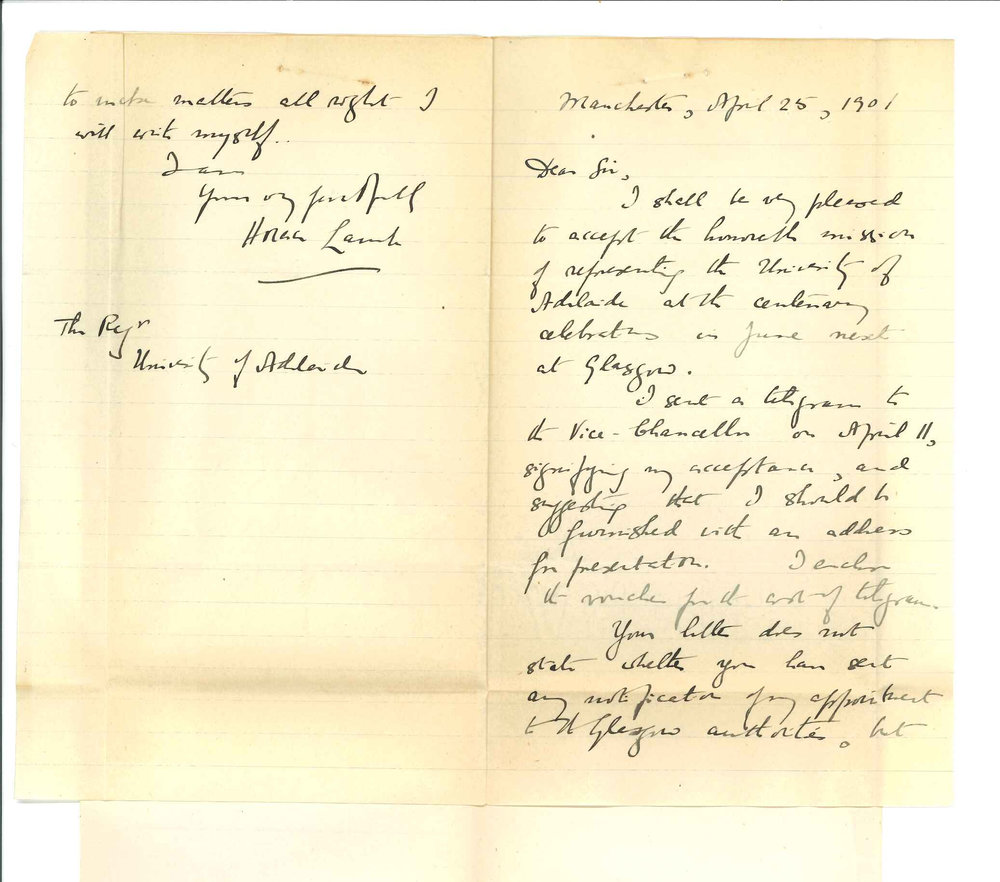 Manchester, April 25, 1901
Dear Sir,
I shall be very pleased
to accept the honorable mission
of representing the University of
Adelaide at the centenary
celebrations in June next
at Glasgow.
I sent a telegram to
the Vice-Chancellor on April 11,
signifying my acceptance, and
suggesting that I should be
furnished with an address
for presentation. I enclose
the voucher for the cost of telegram.
Your letter does not
state whether you have sent
any notification of my appointment
to the Glasgow authorities, but
to make matters all right I
will write myself..
I am
Yours very faithfully
Horace Lamb
The Regr
University of Adelaide